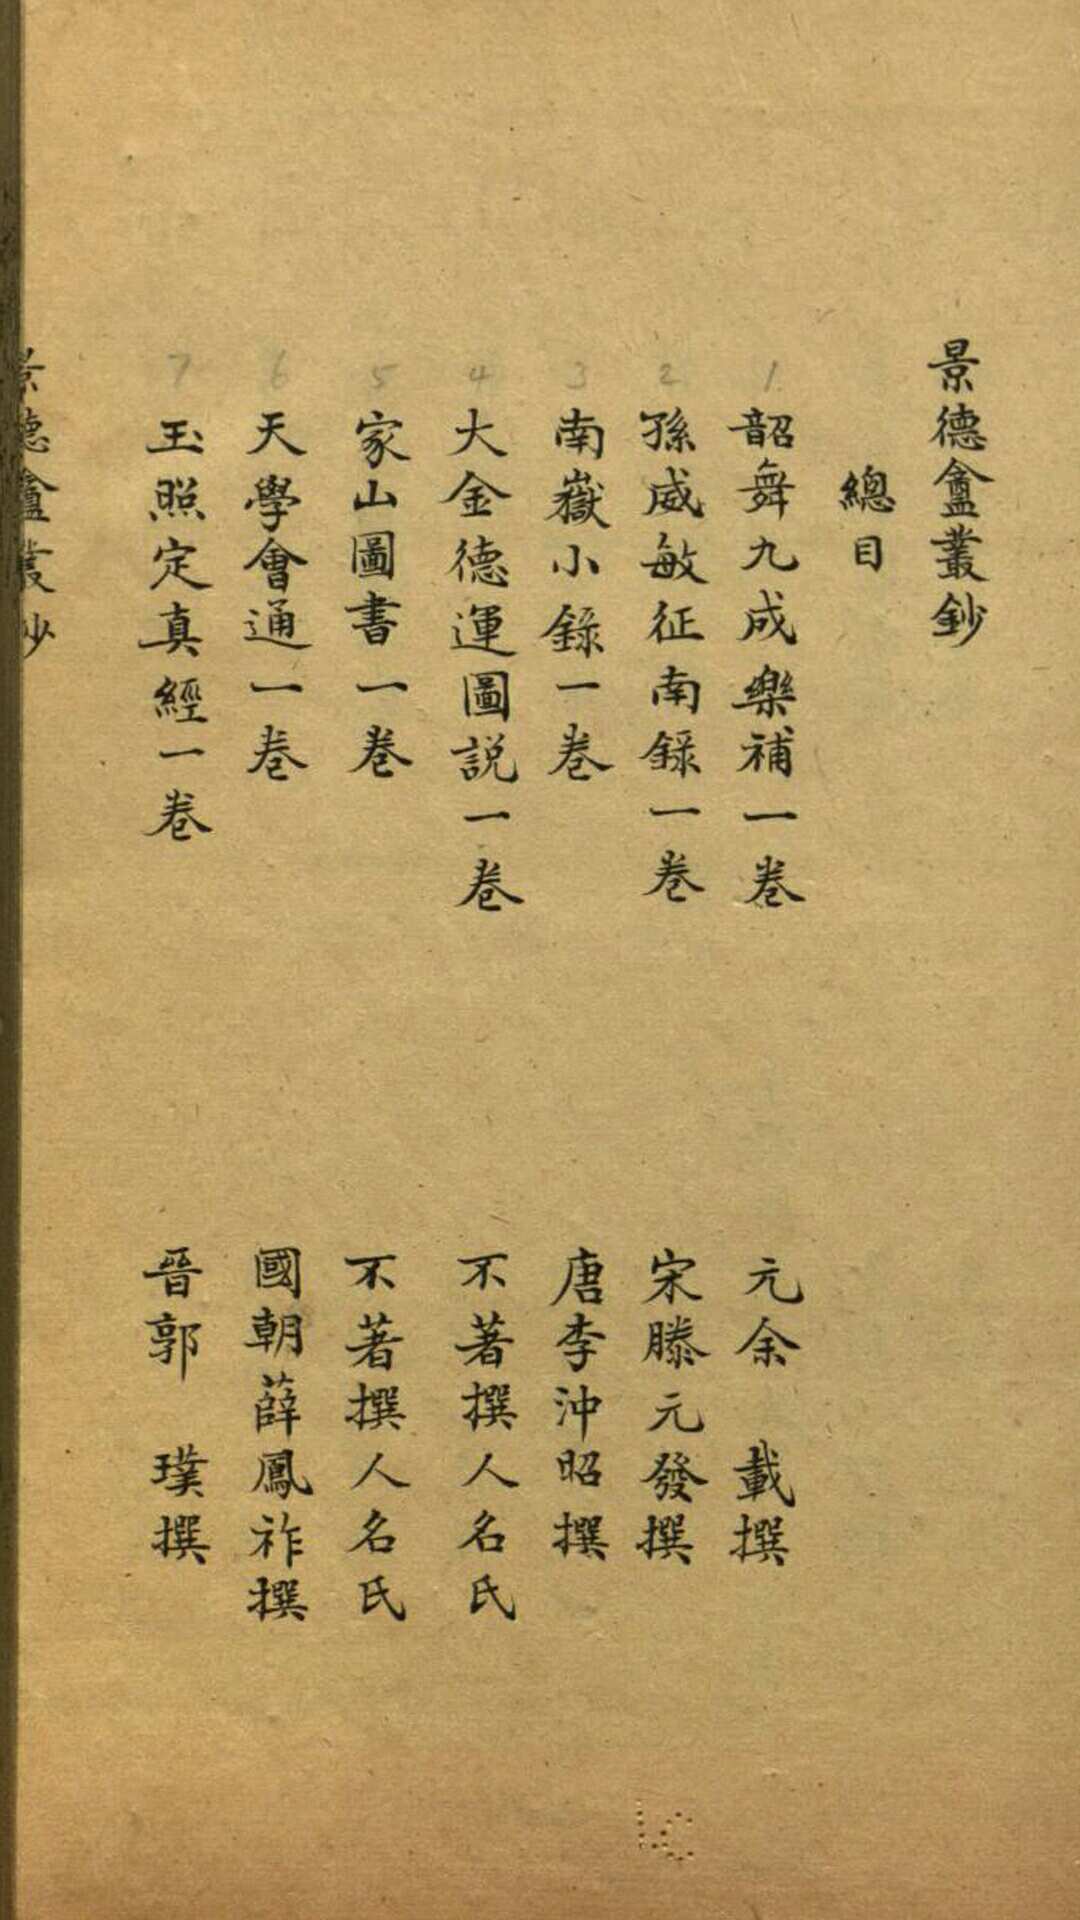 景德龕叢鈔
總目
1
韶舞九成樂補一卷 元余載撰
2
孫威敏征南錄一卷 宋滕元發撰
3
南嶽小錄一卷 唐李沖昭撰
4
大金德運圖説一卷 不著撰人名氏
5
家山圖書一卷 不著撰人名氏
6
天學會通一卷 國朝薛鳳祚撰
7
玉照定真經一卷 晉郭璞撰
景德龕叢鈔
LC